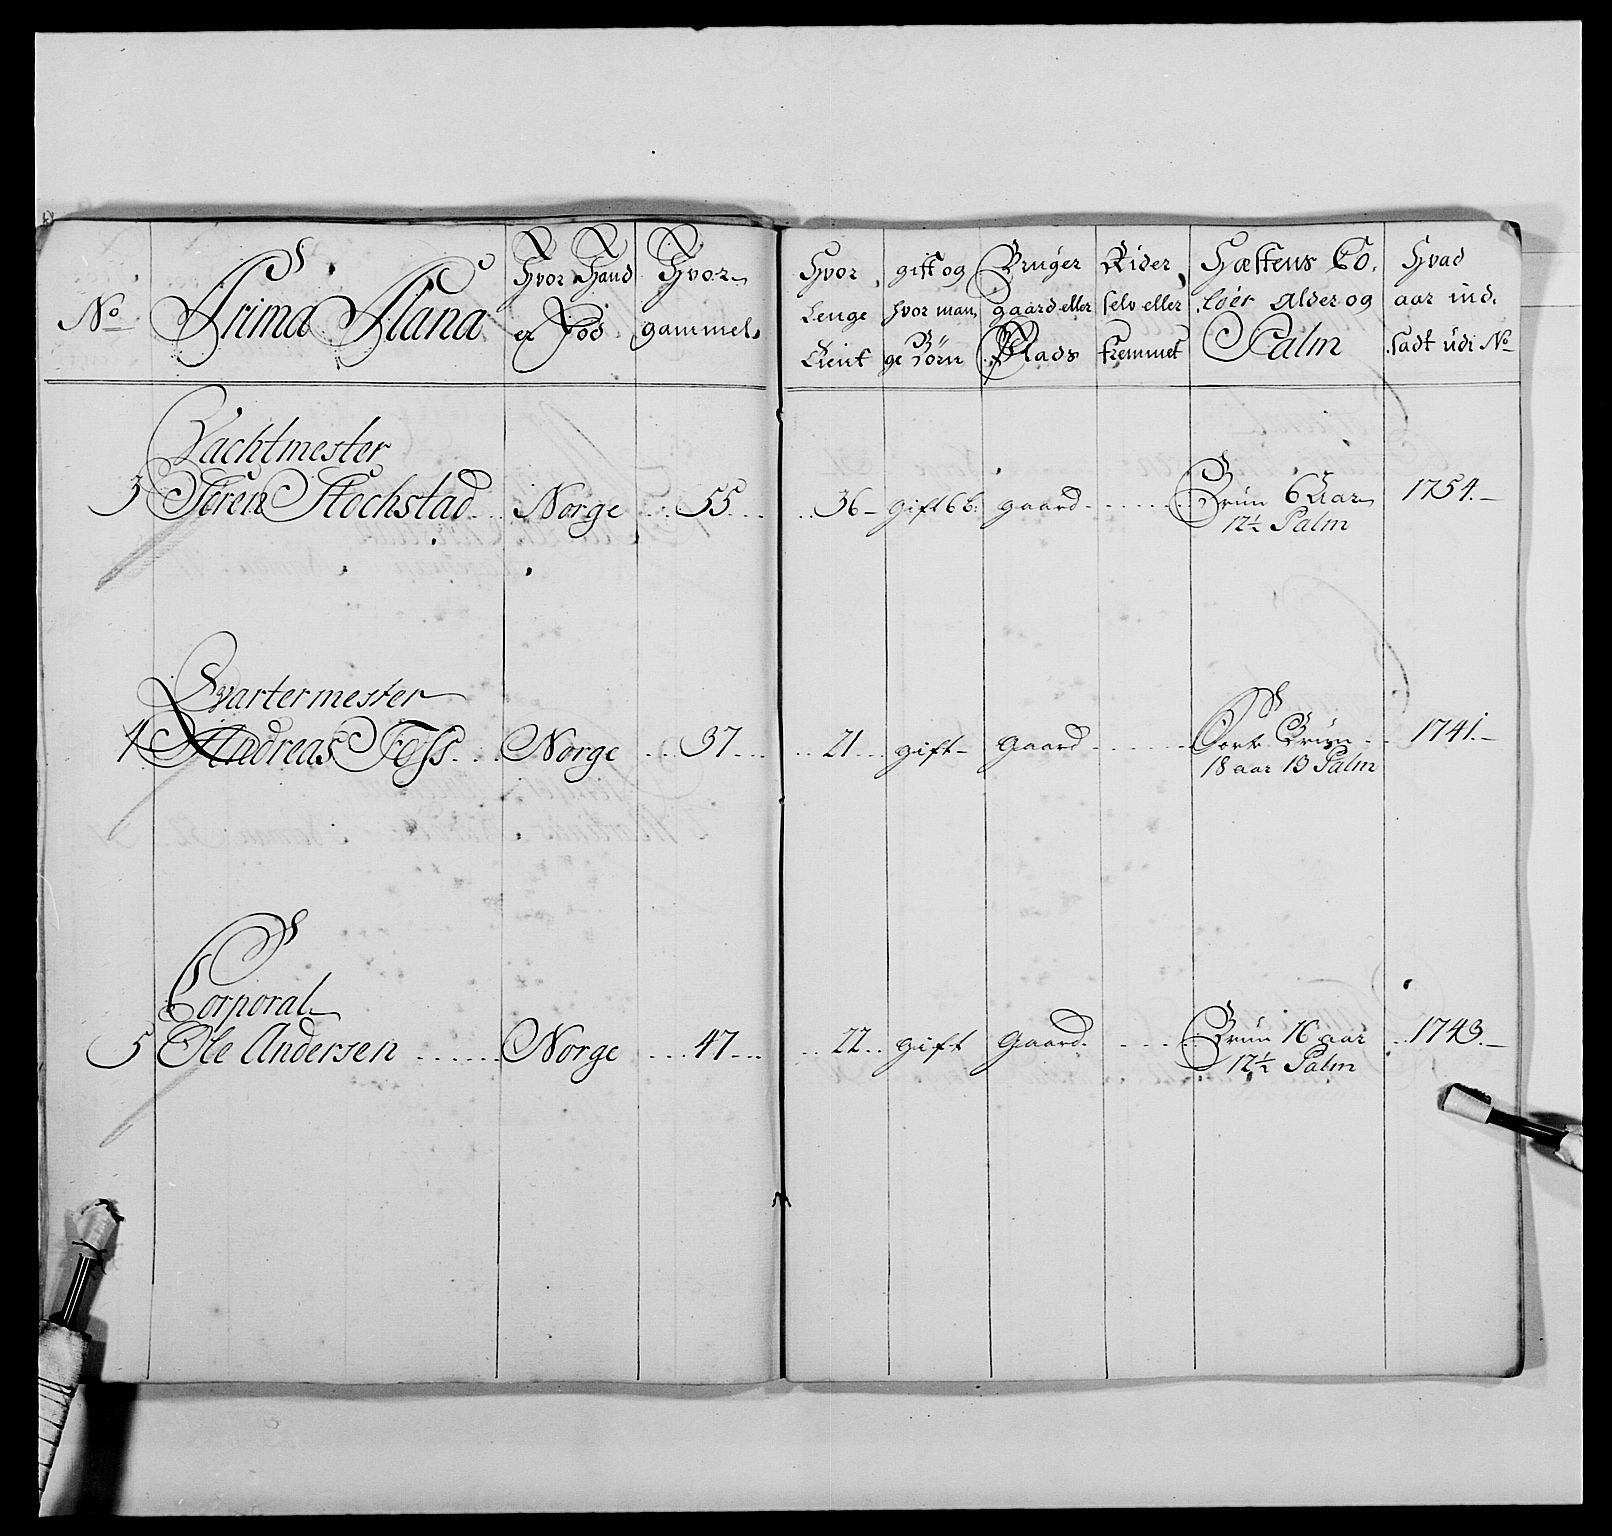 No Prima Plana Hvor Hand er Föd Hvor gammel
Hvor Lenge tient gift og hvor mange Börn Bruger gaard eller Plads Rider selv eller fremmet Hæstens Colör Alder og Palm Hvad aar indsadt udi No
Vachtmester
3 Sören Stochstad Norge 55 36 gift 6 b: gaard Brun 6 aar 1754.
12½ Palm
Qvartermester
4 Andreas Foss Norge 37 21 gift gaard Sort Brun 1741.
18 aar 13 Palm
Corporal
5 Ole Andersen Norge 47 22 gift gaard Brun 16 aar 1743.
12½ Palm